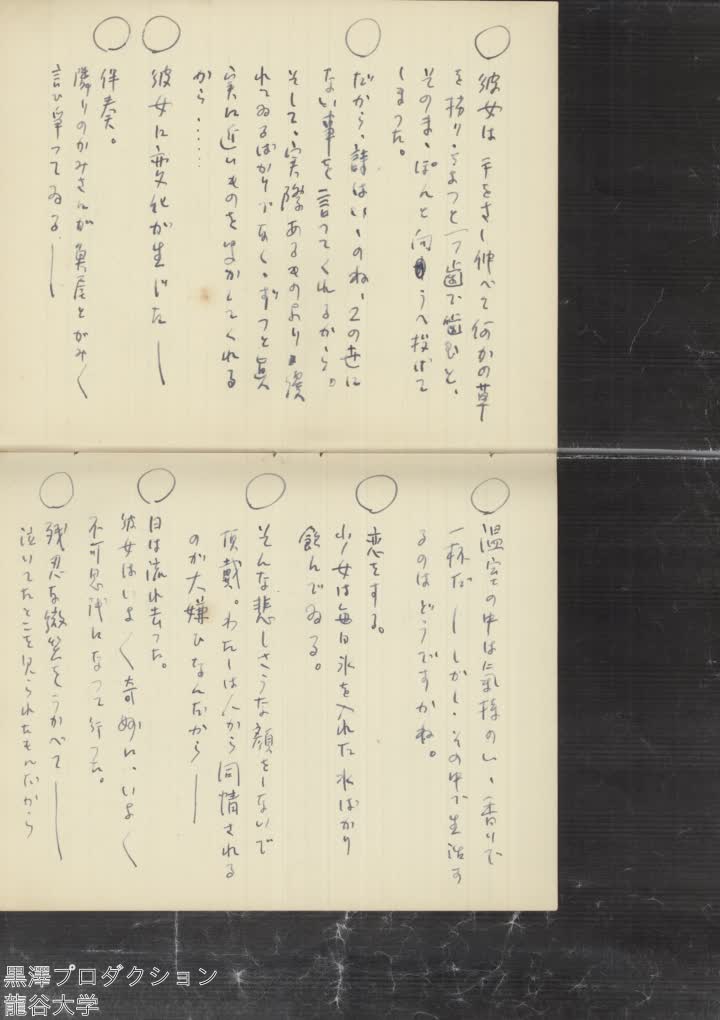 彼女は手をさし伸べて何かの草
を捥り、ちよつと一つ齒で齒むと、
そのまゝぽんと向うへ投げて
しまつた。
だから、詩はいゝのね、この世に
ない事を言つてくれるから。
そして、実際あるものより優
れてゐるばかりでなく、ずつと眞
実に近いものを聞かしてくれる
から……
彼女に変化が生じた——
伴奏。
隣りのかみさんが魚屋とがみ〳〵
言ひ争つてゐる——
温室の中は気持のいゝ香りで
一杯だ——しかし、その中で生活す
るのはどうですかね。
恋をする。
少女は毎日氷を入れた水ばかり
飲んでゐる。
そんな悲しさうな顔をしないで
頂戴。わたしは人から同情される
のが大嫌ひなんだから——
日は流れ去つた。
彼女はいよ〳〵奇妙に、いよ〳〵
不可思議になつて行つた。
残忍な微笑をうかべて——
泣いてたとこを見られたもんだから
黒澤プロダクション
龍谷大学